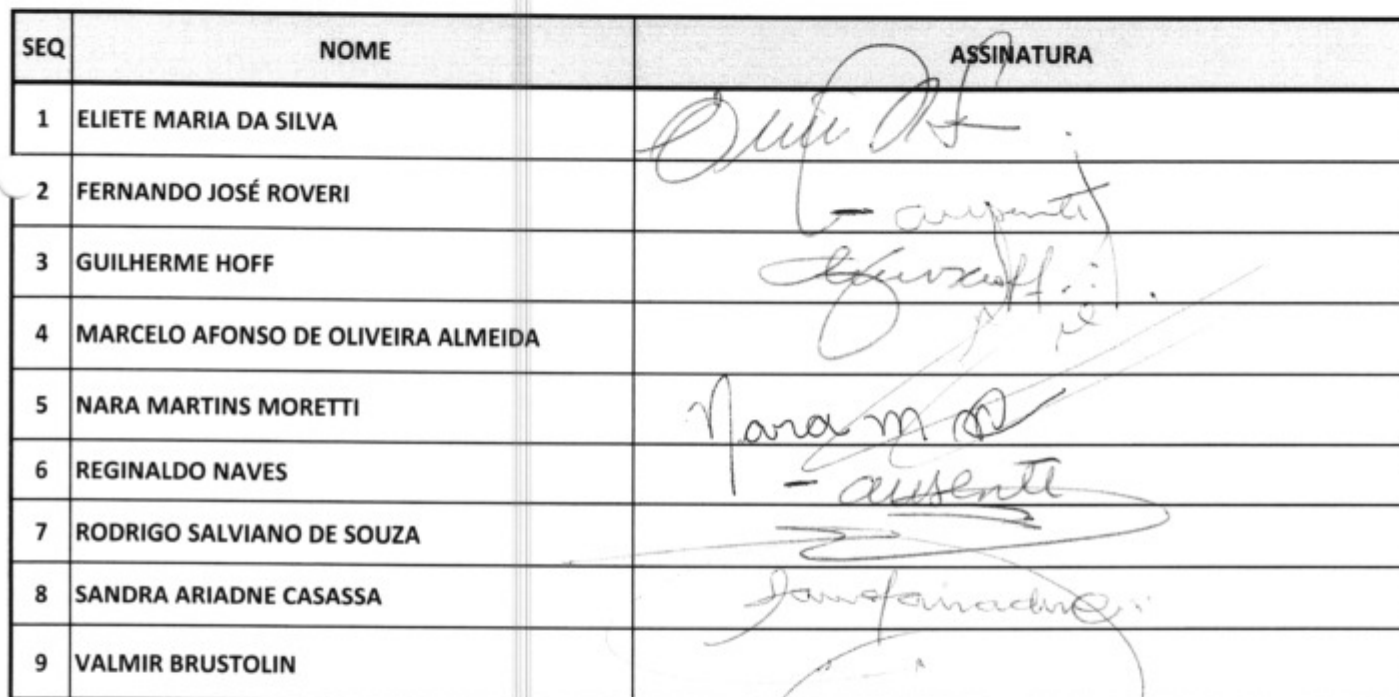 SEQ NOME ASSINATURA
1 ELIETE MARIA DA SILVA
2 FERNANDO JOSÉ ROVERI - ausente
3 GUILHERME HOFF
4 MARCELO AFONSO DE OLIVEIRA ALMEIDA
5 NARA MARTINS MORETTI Nara M
6 REGINALDO NAVES - ausente
7 RODRIGO SALVIANO DE SOUZA
8 SANDRA ARIADNE CASASSA
9 VALMIR BRUSTOLIN